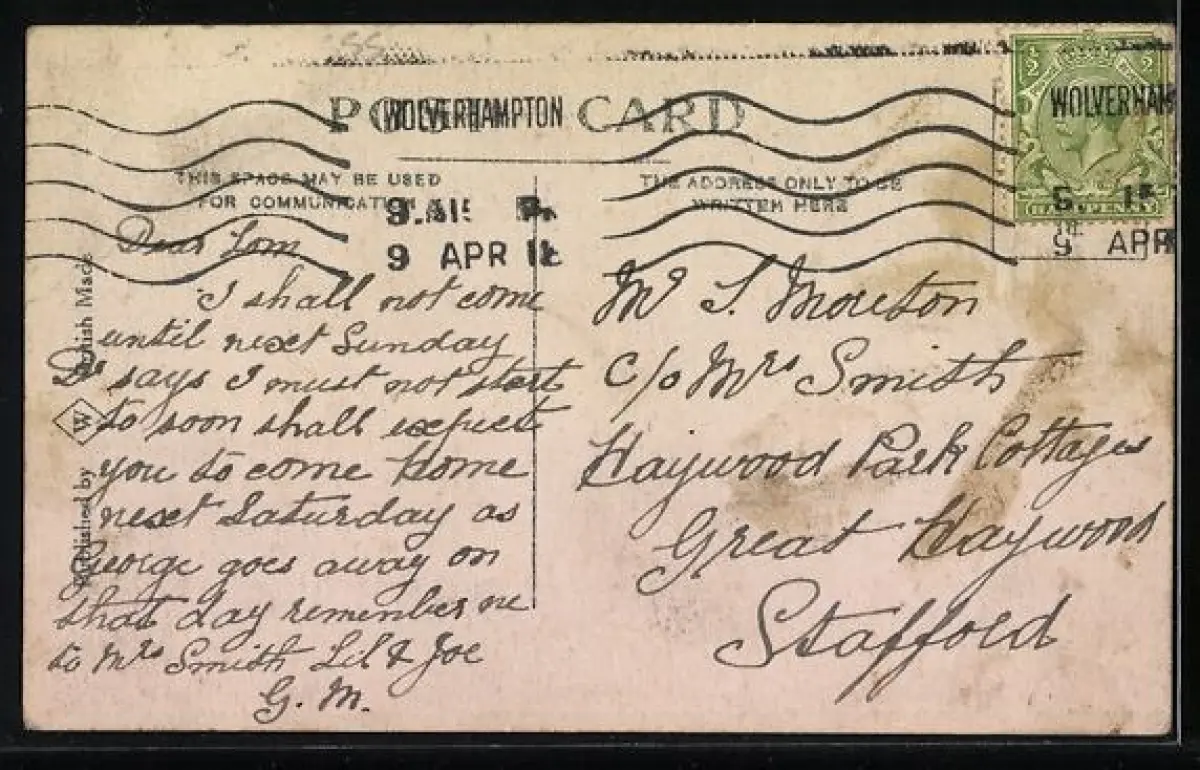 POST CARD
WOLVERHAMPTON
WOLVERHAM
THIS SPACE MAY BE USED
FOR COMMUNICATION
THE ADDRESS ONLY TO BE
WRITTEN HERE
9 APR
9 APR
HALFPENNY
British Made
W
Published by
Dear Tom
I shall not come
until next Sunday
Dr says I must not start
to soon shall expect
you to come home
next Saturday as
George goes away on
that day remember me
to Mrs Smith Lil & Joe
G. M.
Mr T. Mouton
c/o Mrs Smith
Haywood Park Cottages
Great Haywood
Stafford